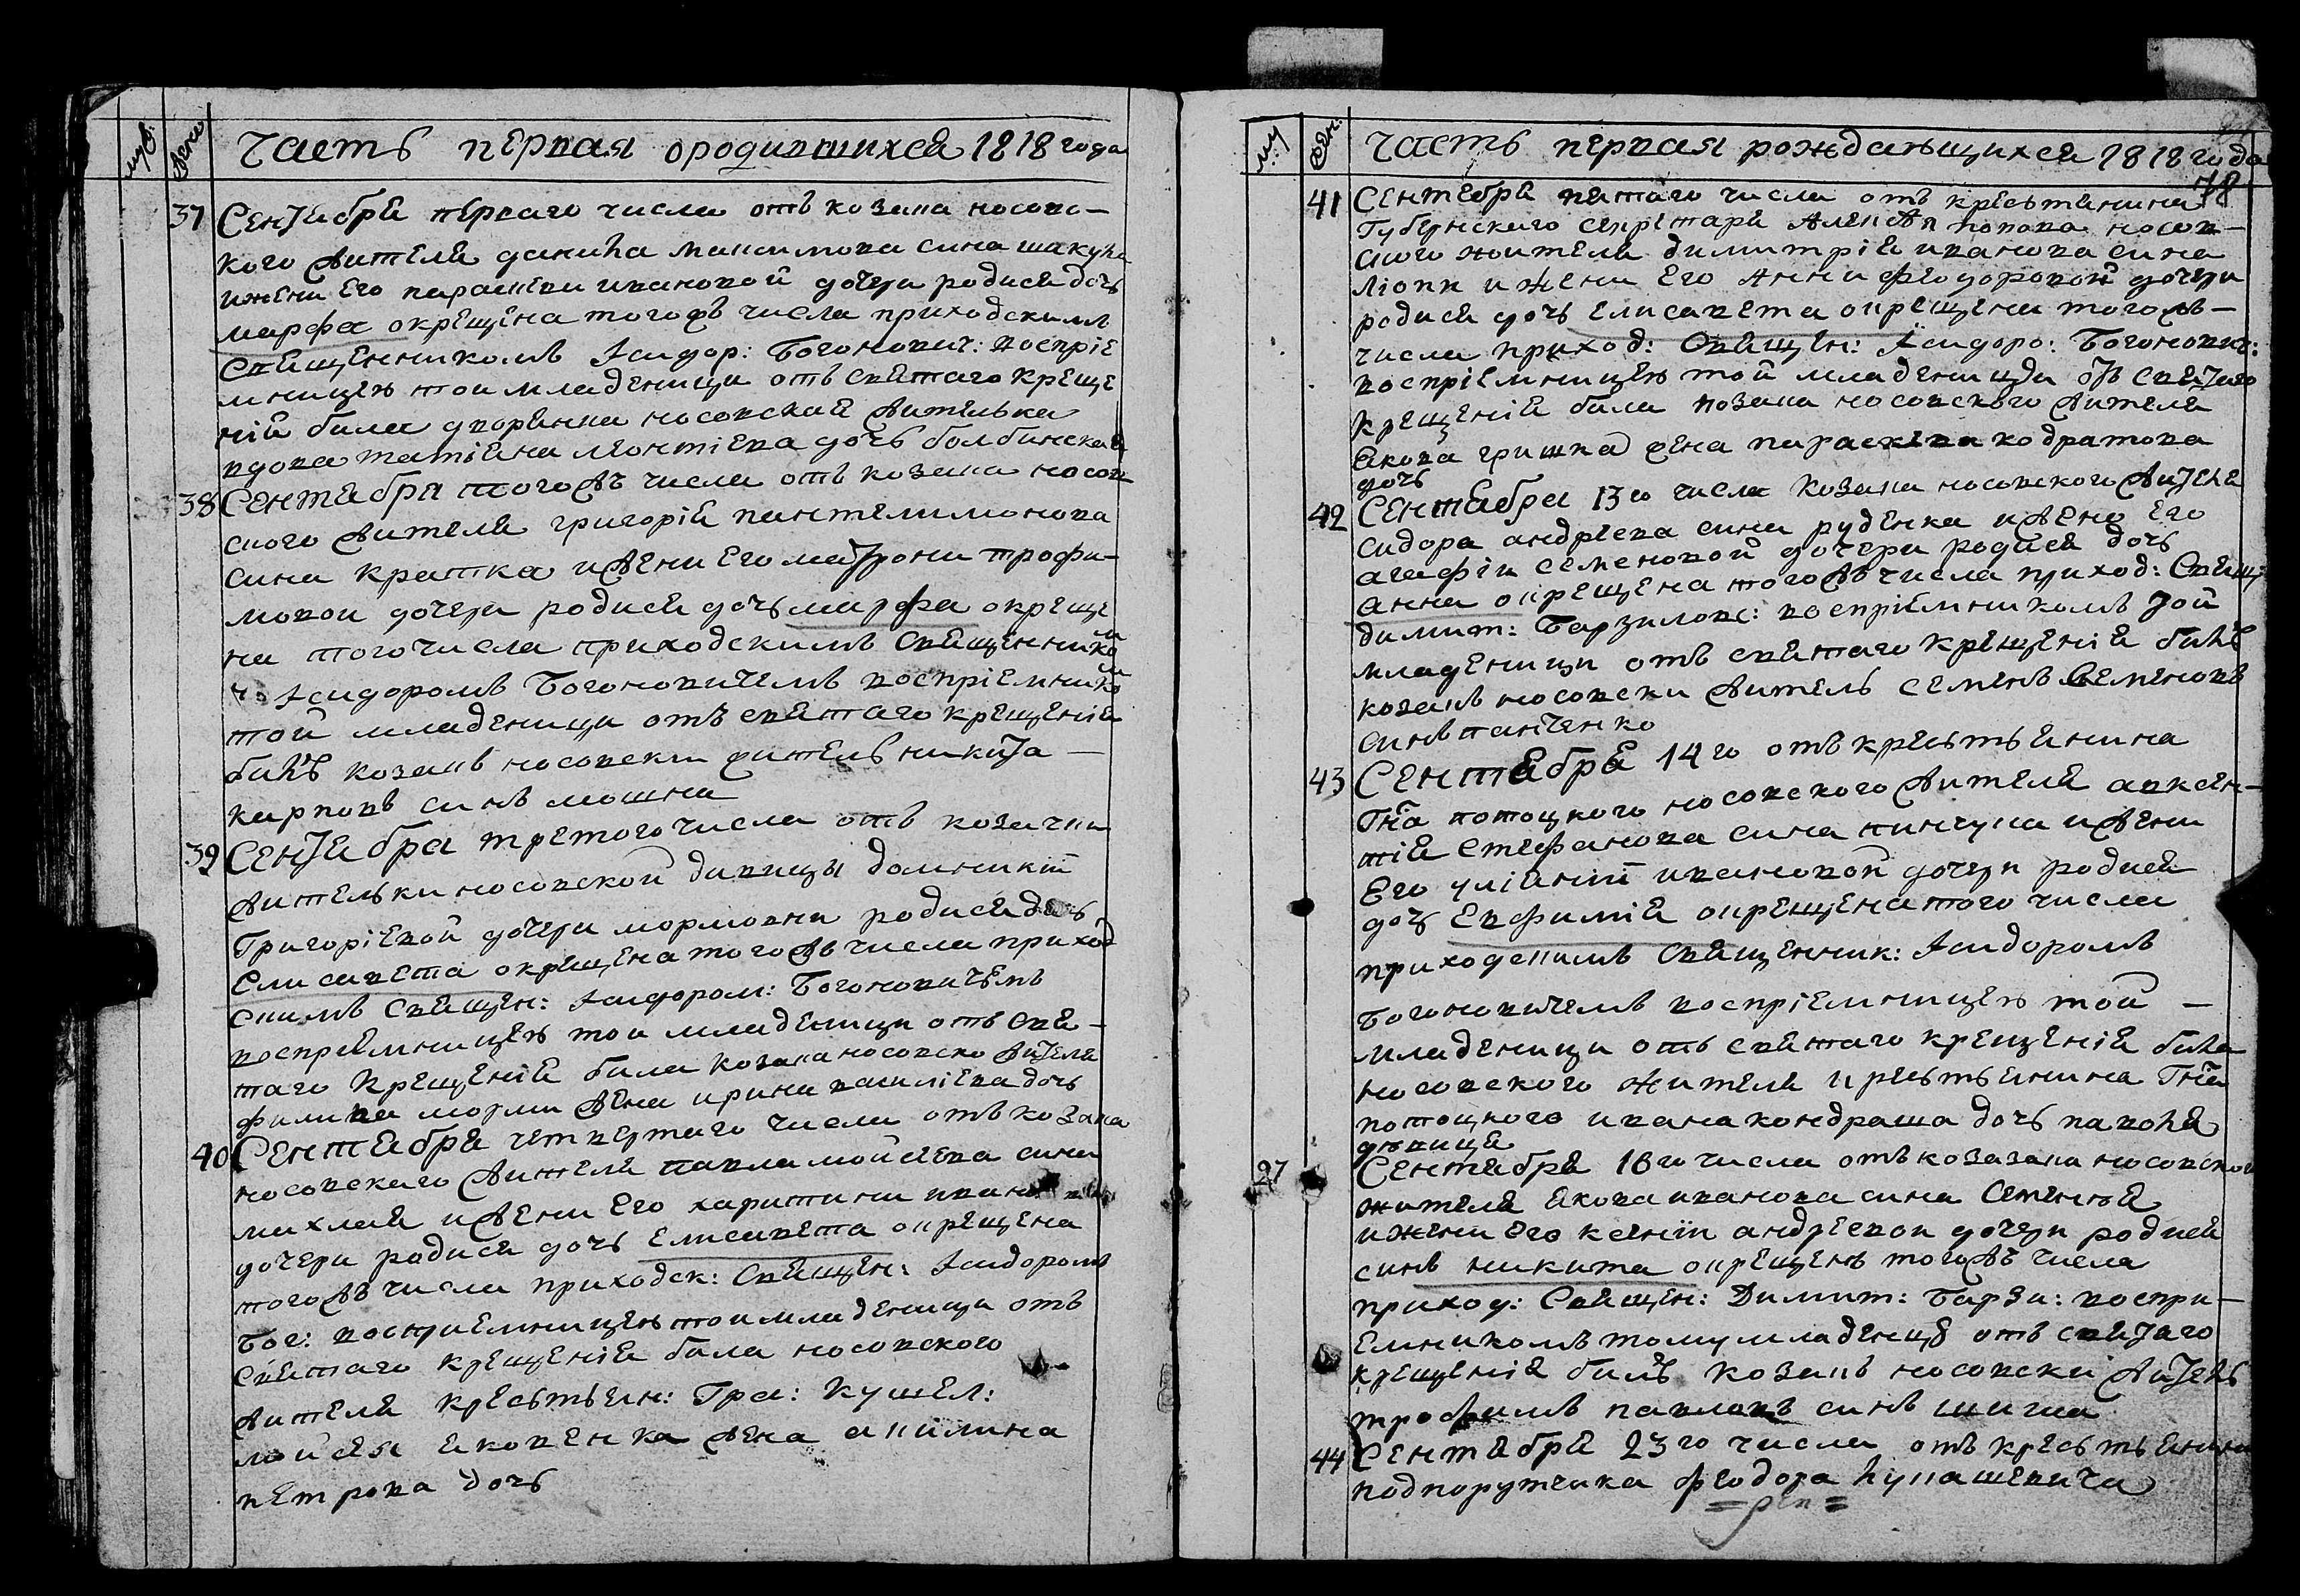 муж:
женс
Часть первая ородившихся 1818 года
37 Сентября перваго числа отъ козака носовс-
кого жителя данила максимова сина шакуна
ижени его параскеви ивановой дочери родися дочь
марфа окрещена тогожъ числа приходскимъ
Священникомъ Ісидор: Богонович: воспріе
мницею тои младеници отъ святаго креще
нія била дворянка носовская жителька
вдова татіяна леонтіева дочь болбинская
38 Сентября тогожъ числа отъ козака носов
ского жителя григорія пантелимонова
сина кратка ижени его матрони трофи-
мовои дочери родися дочь марфа окреще
на того числа приходскимъ Священнико
м Ісидоромъ Богоновичемъ воспріемнико
той младеници отъ святаго крещенія
билъ козакъ носовски житель никита
карповъ синъ мошна
39 Сентября третого числа отъ козачки
жительки носовской дивици домникіи
Григоріевой дочери мормовни родися дочь
Елисавета окрещена тогожъ числа приход
скимъ Священ: Ісидором: Богоновичемъ
воспреемницею тои младеници отъ свя-
таго крещенія била козака носовско жителя
филипа морми жена ирина василіева дочь
40 Сентября четвертаго числа отъ козака
носовскаго жителя павла мойсеева сина
михлая ижени его харитини ивановой
дочери родися дочь Елисавета окрещена
тогожъ числа приходск: Священ: Ісидоромъ
Бог: воспріемницею тои младеници отъ
святаго крещенія била носовского
жителя крестьян: Гра: Кушел:
мойсея яковенка жена акилина
петрова дочь
муж
жен:
Часть первая рождающихся 1818 года
78
41 Сентября пятаго числа отъ крестянина
Губернскаго секретаря Алекся попова носов-
ского жителя димитрія иванова сина
ліопи ижени его Анни феодоровой дочери
родися дочь елисавета окрещена тогожъ-
числа приход: Священ: Ісидоро: Богонович:
воспріемницею той младеници отъ святаго
крещенія била козака носовского жителя
якова гришка жена параскева кодратова
дочь
42 Сентября 13го числа козака носовского жителя
сидора андреева сина руденка ижени его
агафіи семеновой дочери родися дочь
анна окрещена тогожъ числа приход: Свящ
димит: Барзиловс: воспріемникомъ той
младеници отъ святаго крещенія билъ
козакъ носовски житель семенъ семеновъ
синъ панченко
43 Сентября 14го отъ крестьянина
Гна потоцкого носовского жителя авксен-
тія стефанова сина пинчука ижени
Его уліяніи ивановой дочери родися
дочь Евфимія окрещена того числа
приходскимъ Священник: Ісидоромъ
Богоновичемъ воспріемницею той -
младеници отъ святаго крещенія била
носовского жителя крестьянина Гна
потоцкого ивана кондраша дочь павола
девица
27 Сентября 16го числа отъ козазака носовского
жителя якова иванова сина Семенюя
ижени его ксеніи андреевои дочери родися
синъ никита окрещенъ тогожъ числа
приход: Священ: Димит: Барзи: воспри-
емникомъ тому младенцу отъ святаго
крещенія билъ козакъ носовски житель
трофимъ павловъ синъ шиша
44 Сентября 23го числа отъ крестьянина
подпорутчика феодора лукашевича
=рев=